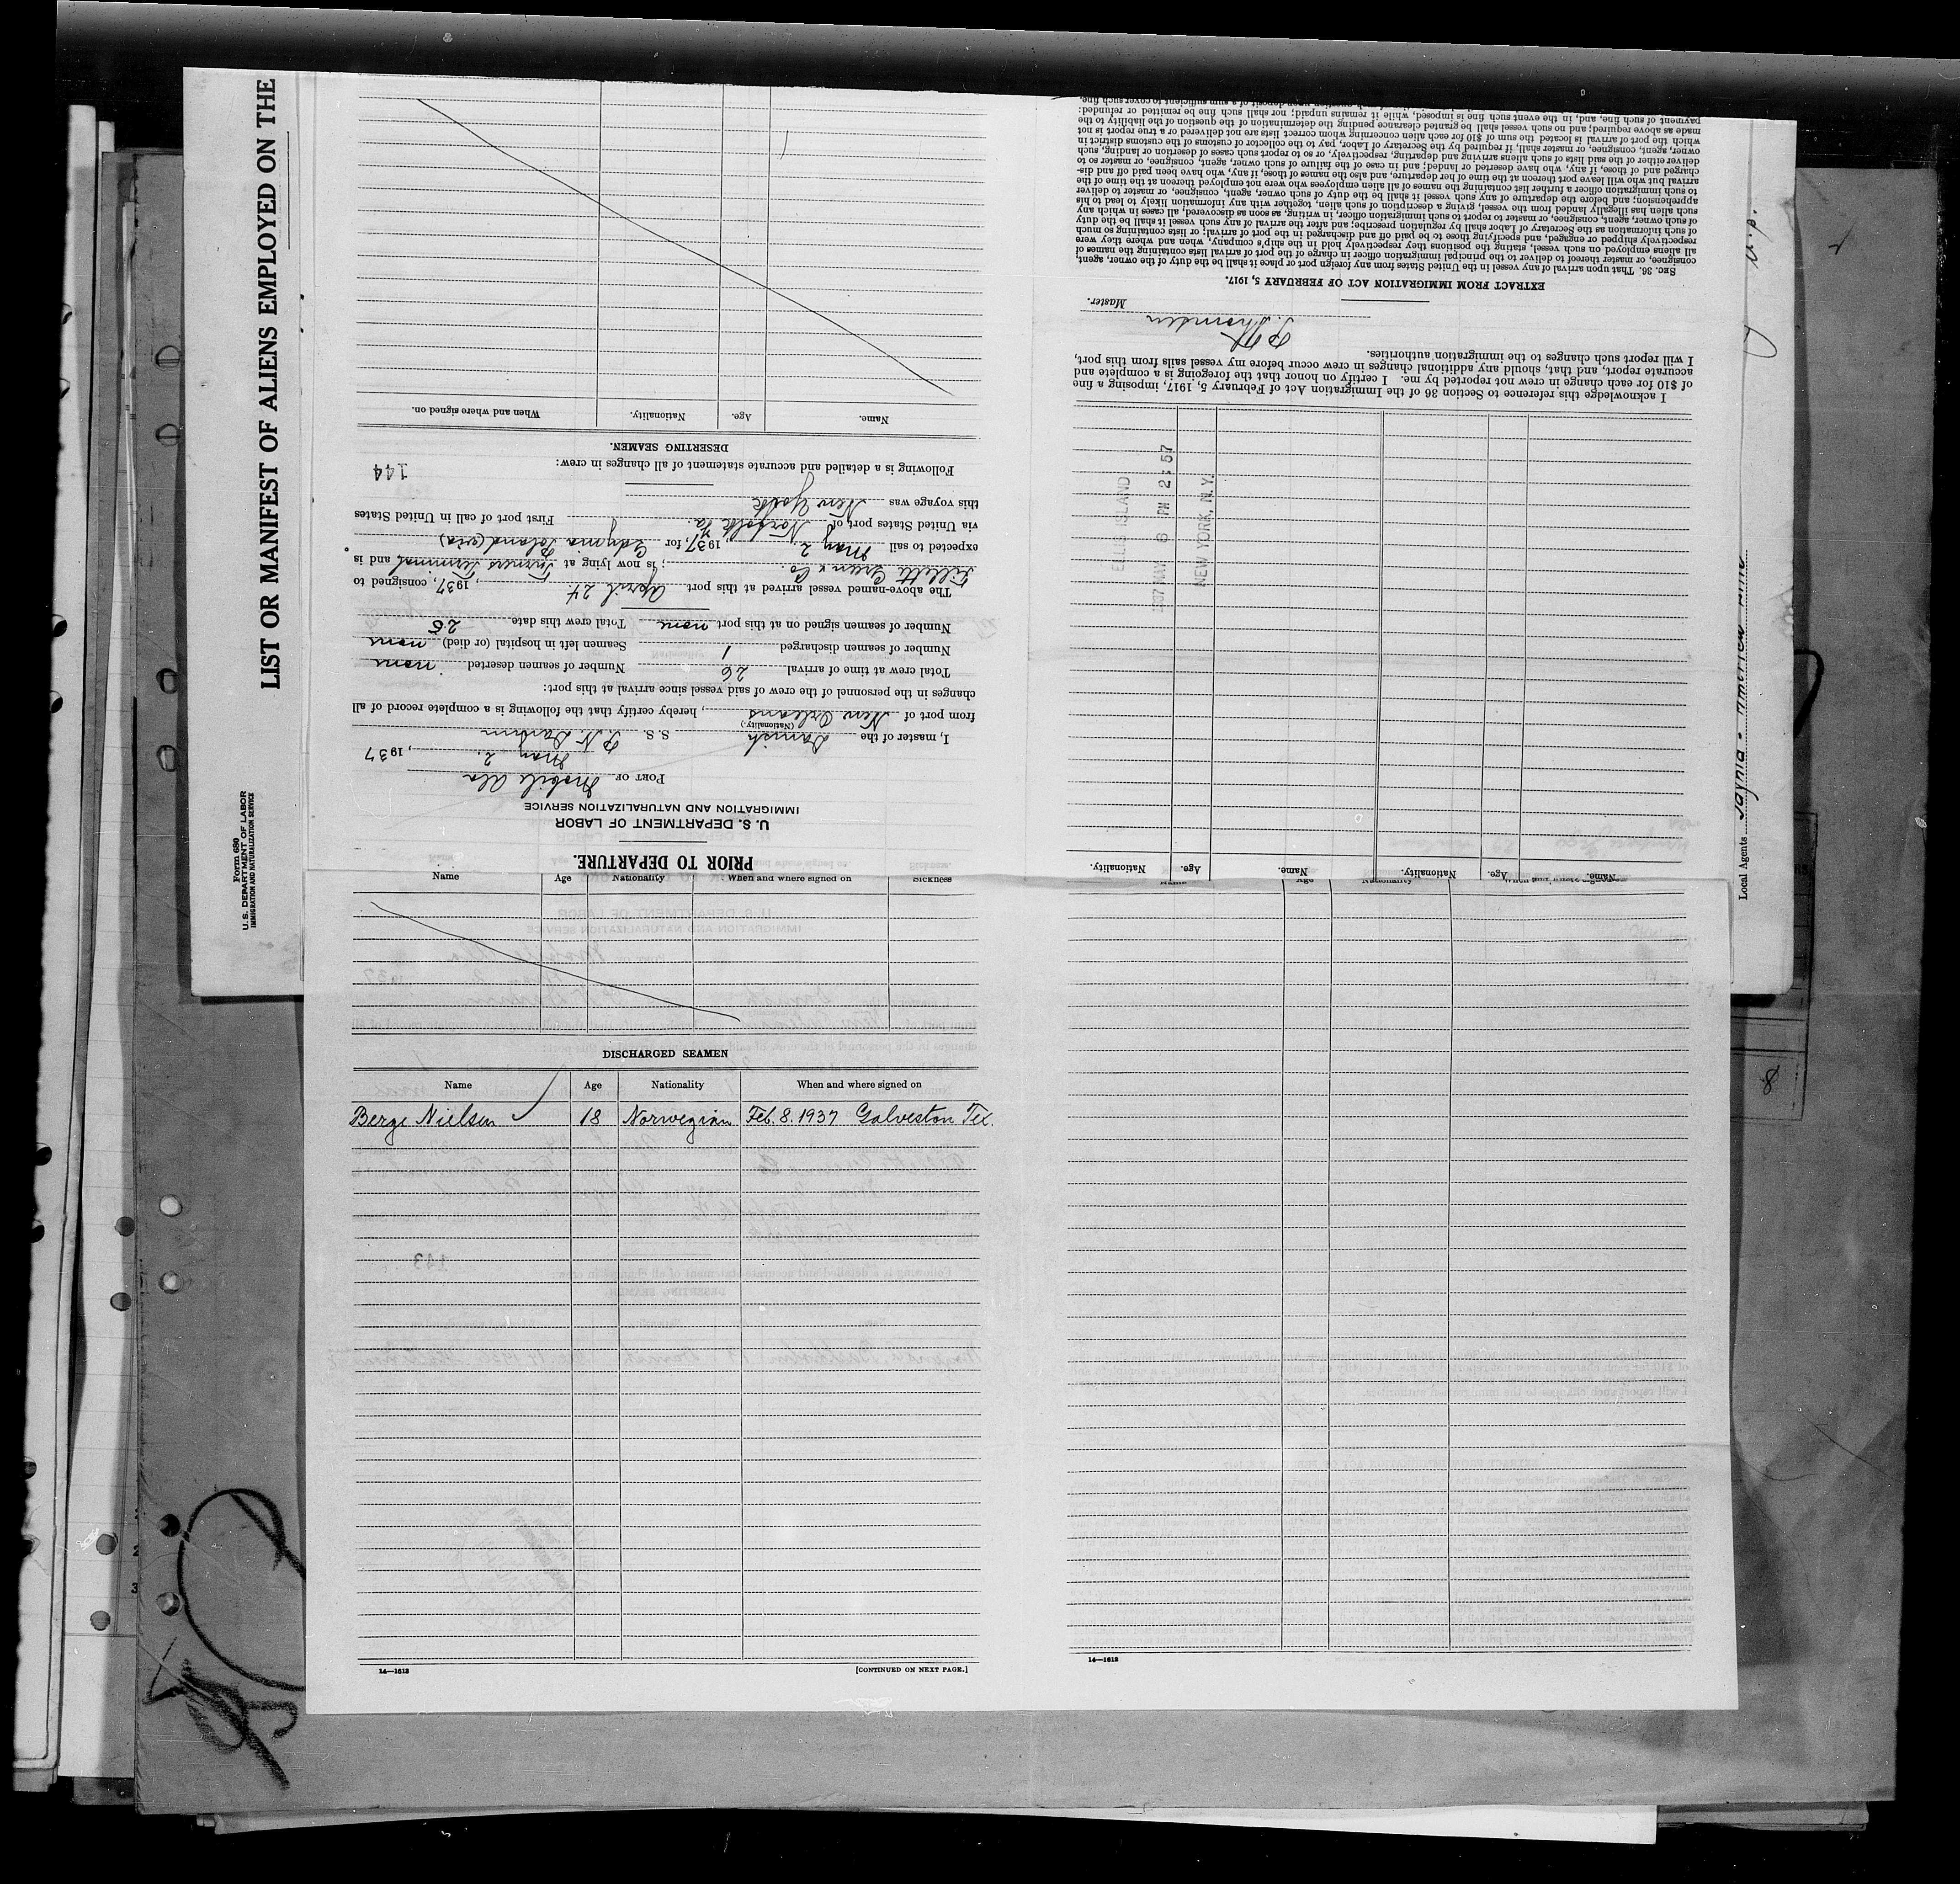 LIST OR MANIFEST OF ALIENS EMPLOYED ON THE
Form 680
U. S. DEPARTMENT OF LABOR
IMMIGRATION AND NATURALIZATION SERVICE
PRIOR TO DEPARTURE.
U. S. DEPARTMENT OF LABOR
IMMIGRATION AND NATURALIZATION SERVICE
PORT OF Mobile Ala
May 2, 1937
I, master of the Danish S. S. P. N. Damm
(Nationality.)
from port of New Orleans, hereby certify that the following is a complete record of all
changes in the personnel of the crew of said vessel since arrival at this port:
Total crew at time of arrival 26 Number of seamen deserted none
Number of seamen discharged 1 Seamen left in hospital (or died) none
Number of seamen signed on at this port none Total crew this date 25
The above-named vessel arrived at this port April 24, 1937, consigned to
Fillette Green & Co.; is now lying at Turners Terminal and is
expected to sail May 2, 1937, for Gdynia Poland (via)
via United States port of Norfolk Va. First port of call in United States
this voyage was New York
Following is a detailed and accurate statement of all changes in crew:
144
DESERTING SEAMEN.
Name. Age. Nationality. When and where signed on.
Name. Age. Nationality. Name. Age. Nationality.
ELLIS ISLAND
1937 MAY 6 PM 2:57
NEW YORK, N.Y.
I acknowledge this reference to Section 36 of the Immigration Act of February 5, 1917, imposing a fine
of $10 for each change in crew not reported by me. I certify on honor that the foregoing is a complete and
accurate report, and that, should any additional changes in crew occur before my vessel sails from this port,
I will report such changes to the immigration authorities.
Master.
EXTRACT FROM IMMIGRATION ACT OF FEBRUARY 5, 1917.
SEC. 36. That upon arrival of any vessel in the United States from any foreign port or place it shall be the duty of the owner, agent,
consignee, or master thereof to deliver to the principal immigration officer in charge of the port of arrival lists containing the names of
all aliens employed on such vessel, stating the positions they respectively hold in the ship's company, when and where they were
respectively shipped or engaged, and specifying those to be paid off and discharged in the port of arrival; or lists containing so much
of such information as the Secretary of Labor shall by regulation prescribe; and after the arrival of any such vessel it shall be the duty
of such owner, agent, consignee, or master to report to such immigration officer, in writing, as soon as discovered, all cases in which any
such alien has illegally landed from the vessel, giving a description of such alien, together with any information likely to lead to his
apprehension; and before the departure of any such vessel it shall be the duty of such owner, agent, consignee, or master to deliver
to such immigration officer a further list containing the names of all alien employees who were not employed thereon at the time of the
arrival but who will leave port thereon at the time of her departure, and also the names of those, if any, who have been paid off and dis-
charged and of those, if any, who have deserted or landed; and in case of the failure of such owner, agent, consignee, or master so to
deliver either of the said lists of such aliens arriving and departing, respectively, or so to report such cases of desertion or landing, such
owner, agent, consignee, or master, shall, if required by the Secretary of Labor, pay to the collector of customs of the customs district in
which the port of arrival is located the sum of $10 for each alien concerning whom correct lists are not delivered or a true report is not
made as above required; and no such vessel shall be granted clearance pending the determination of the question of the liability to the
payment of such fine, and, in the event such fine is imposed, while it remains unpaid; nor shall such fine be remitted or refunded:
Local Agents
Name Age Nationality When and where signed on Sickness
DISCHARGED SEAMEN
Name Age Nationality When and where signed on
Berge Nielsen 18 Norwegian Feb. 8. 1937 Galveston Tex.
14—1613
[CONTINUED ON NEXT PAGE.]
Name Age Nationality When and where signed on
14—1613
8
143